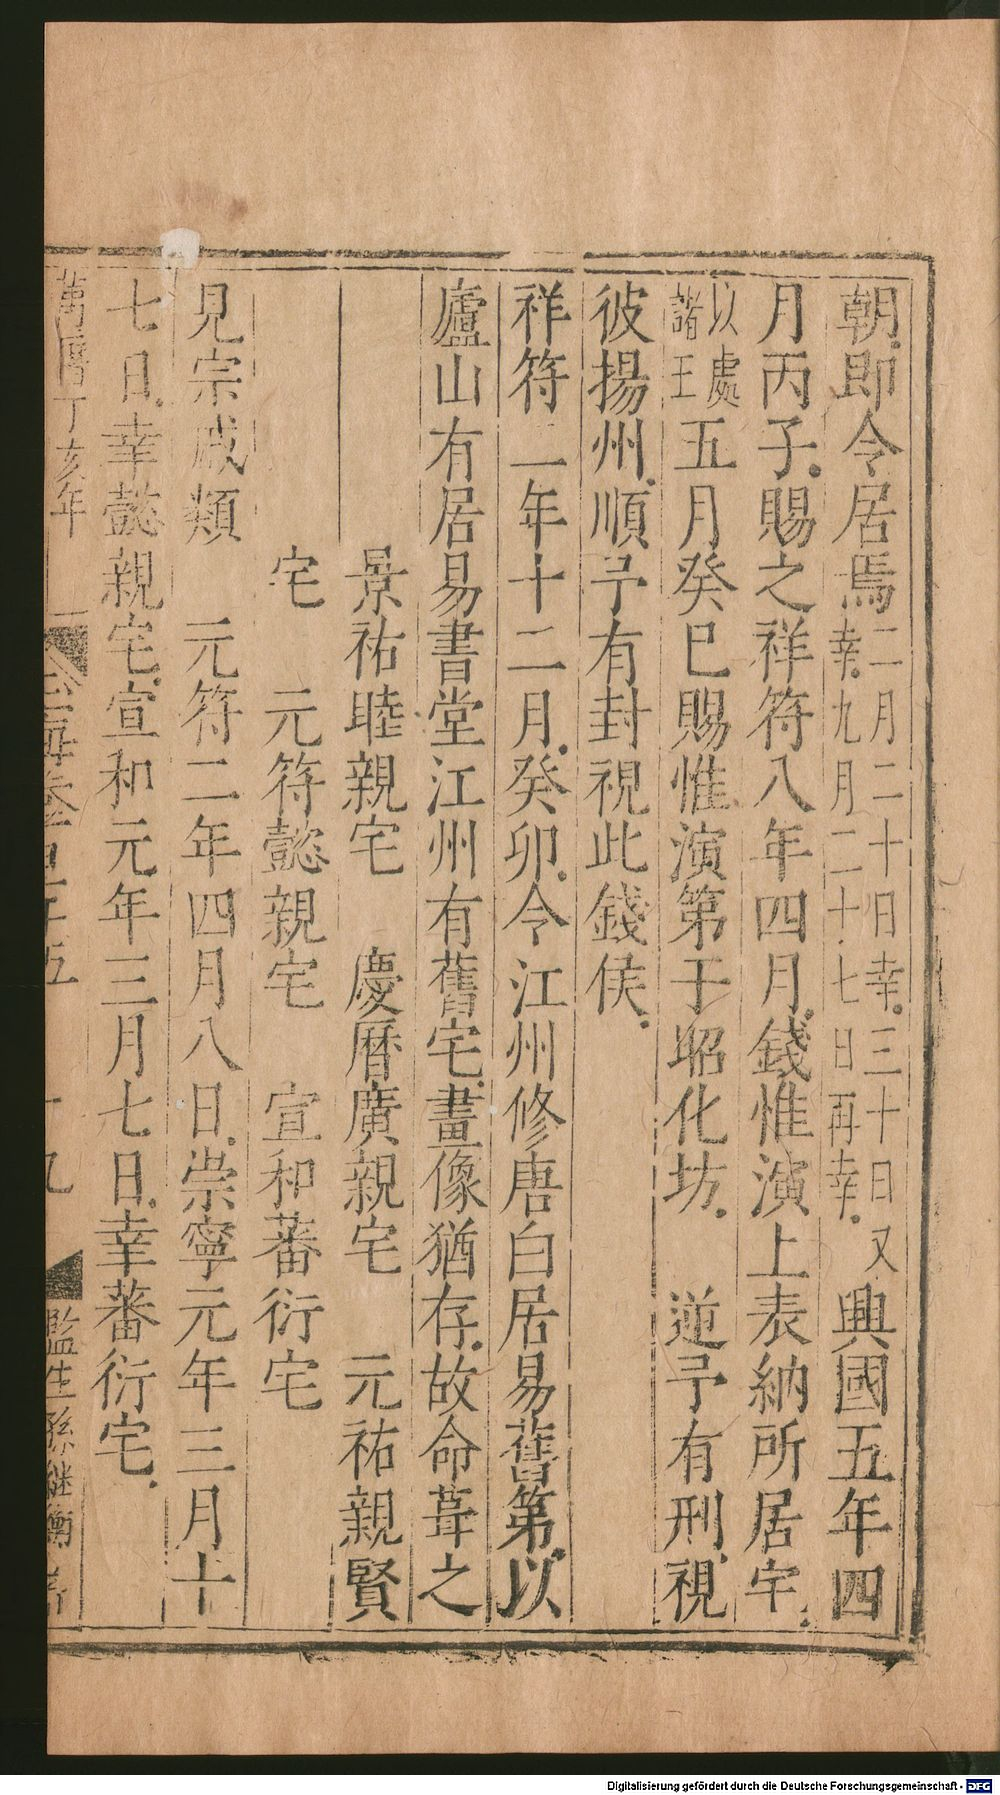 朝即令居焉二月二十日幸三十日又幸九月二十七日再幸興國五年四
月丙子賜之祥符八年四月錢惟演上表納所居宅
以處諸王五月癸巳賜惟演第于昭化坊 逆予有刑視
彼揚州順予有封視此錢侯
祥符二年十二月癸卯令江州修唐白居易舊第以
廬山有居易書堂江州有舊宅畫像猶存故命葺之
景祐睦親宅 慶曆廣親宅 元祐親賢
宅 元符懿親宅 宣和蕃衍宅
見宗戚類 元符二年四月八日崇寧元年三月十
七日幸懿親宅宣和元年三月七日幸蕃衍宅
萬曆丁亥年 玉海卷百五 十九 監生孫繼
Digitalisierung gefördert durch die Deutsche Forschungsgemeinschaft - DFG